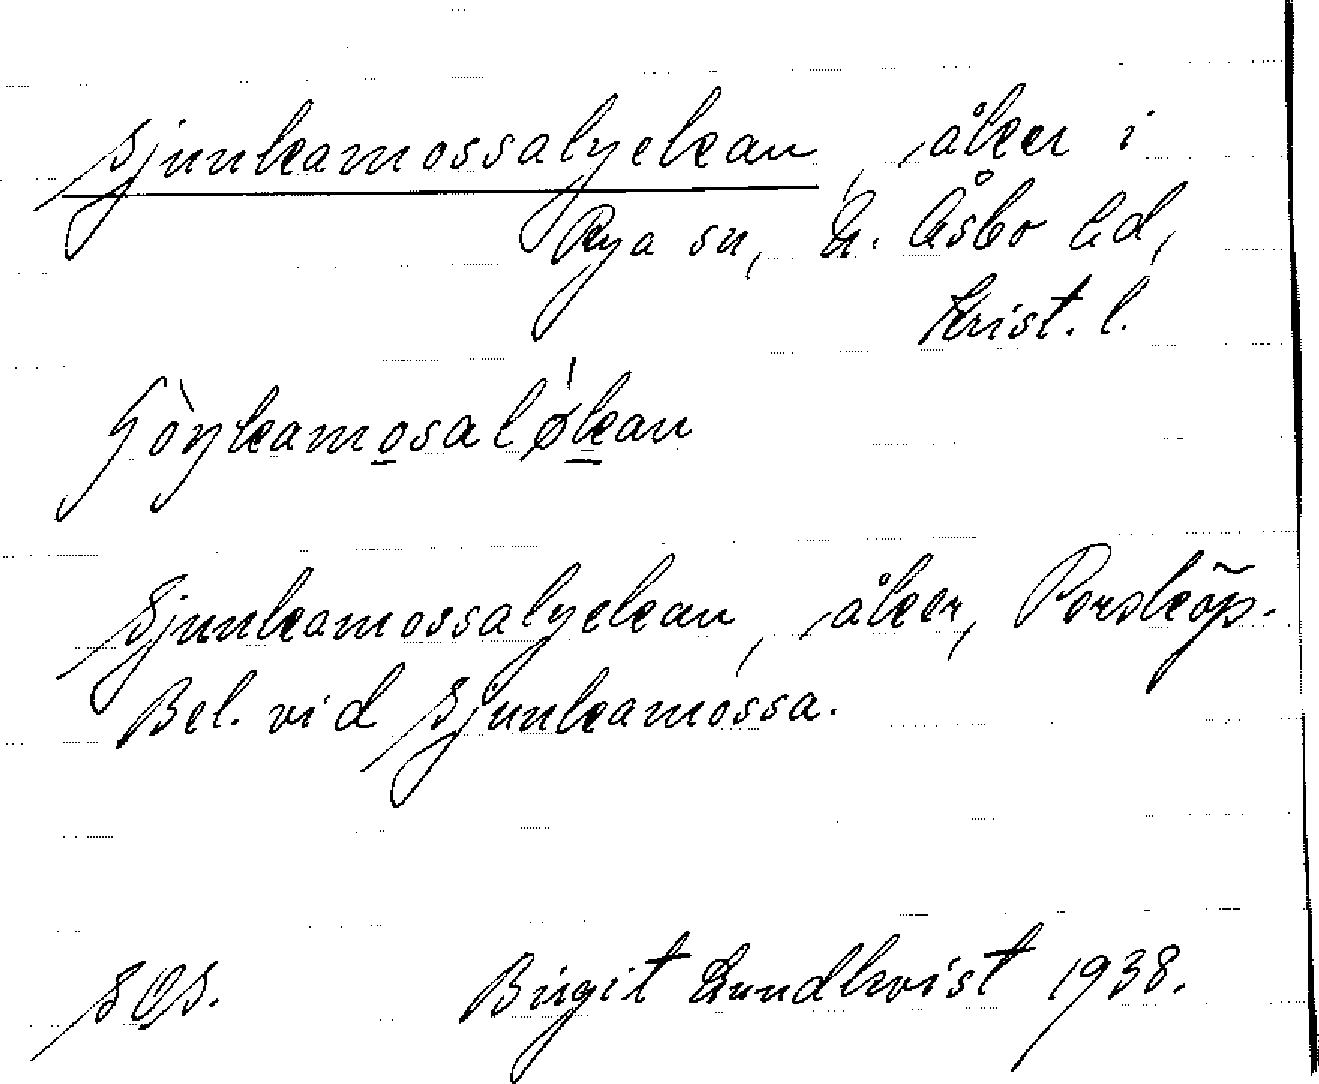 Sjunkamossalyckan, åker i
Rya sn, N. Åsbo hd,
Krist. l.
Sjunkamossalyckan, åker, Porsköp.
Bel. vid Sjunkamossa.
Birgit Lundkvist 1938.